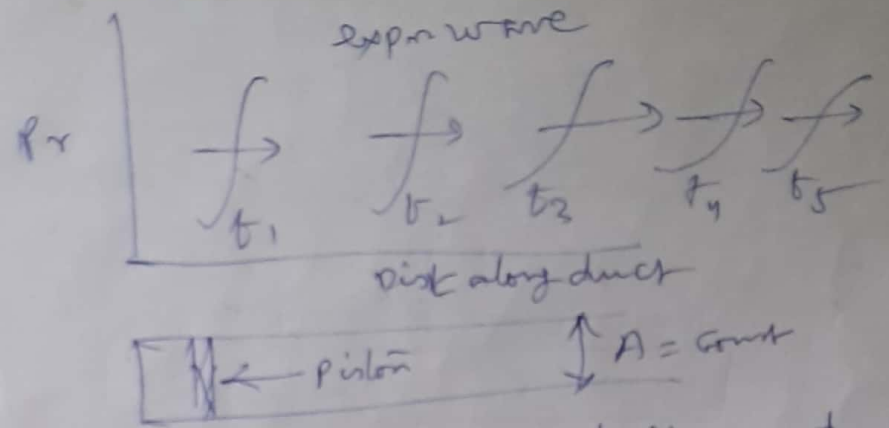 expn wave
Pr
t1 t2 t3 t4 t5
Dist along duct
Piston
A = Const